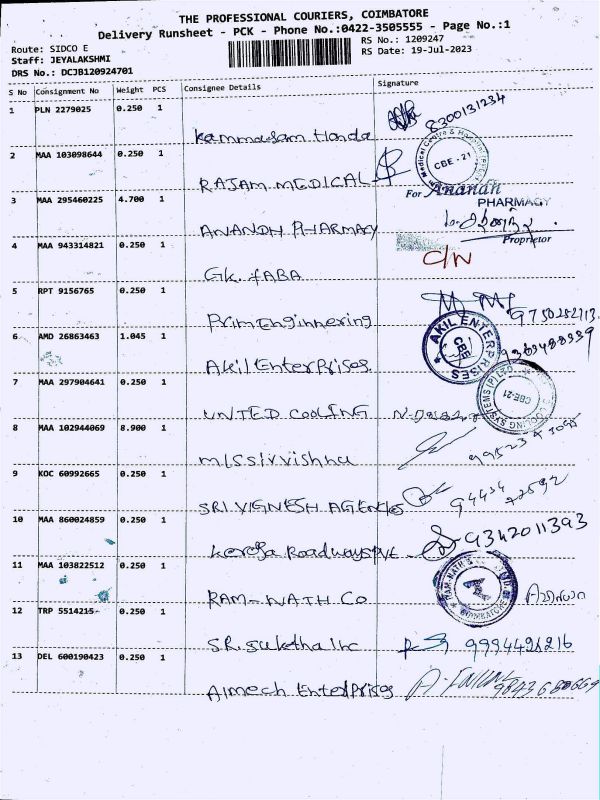 THE PROFESSIONAL COURIERS, COIMBATORE
Delivery Runsheet - PCK - Phone No.:0422-3505555 - Page No.:1
Route: SIDCO E
RS No.: 1209247
Staff: JEYALAKSHMI
RS Date: 19-Jul-2023
DRS No.: DCJB120924701
S No Consignment No Weight PCS Consignee Details Signature
1 PLN 2279025 0.250 1
8300131234
Kammadam Honda
2 MAA 103098644 0.250 1
Medical Centre & Hospital
CBE-21
RAJAM MEDICAL
3 MAA 295460225 4.700 1
For Anandh
PHARMACY
ANANDH PHARMACY
Proprietor
4 MAA 943314821 0.250 1
C/N
GK. FABA
5 RPT 9156765 0.250 1
Prim Enginnering
9750252113
6 AMD 26863463 1.045 1
AKIL ENTERPRISES
CBE
Akil Enterprises
7 MAA 297904641 0.250 1
COOLING SYSTEMS (P) LTD.
CBE-21
UNTED COOLING
8 MAA 102944069 8.900 1
MISSivvishnu
9 KOC 60992665 0.250 1
94434 72592
SRI VIGNESH AGENCIES
10 MAA 860024859 0.250 1
9342011393
Kerela Roadways PVT
11 MAA 103822512 0.250 1
RAM-NATH &
COIMBATORE
RAM-NATH CO
12 TRP 5514215 0.250 1
SR. Suketha Inc
9994494216
13 DEL 600190423 0.250 1
Almech Enterprises
9843680669